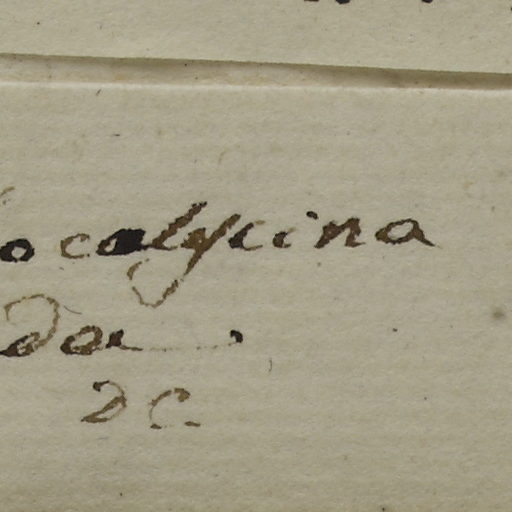 ocalycina
da
DC.